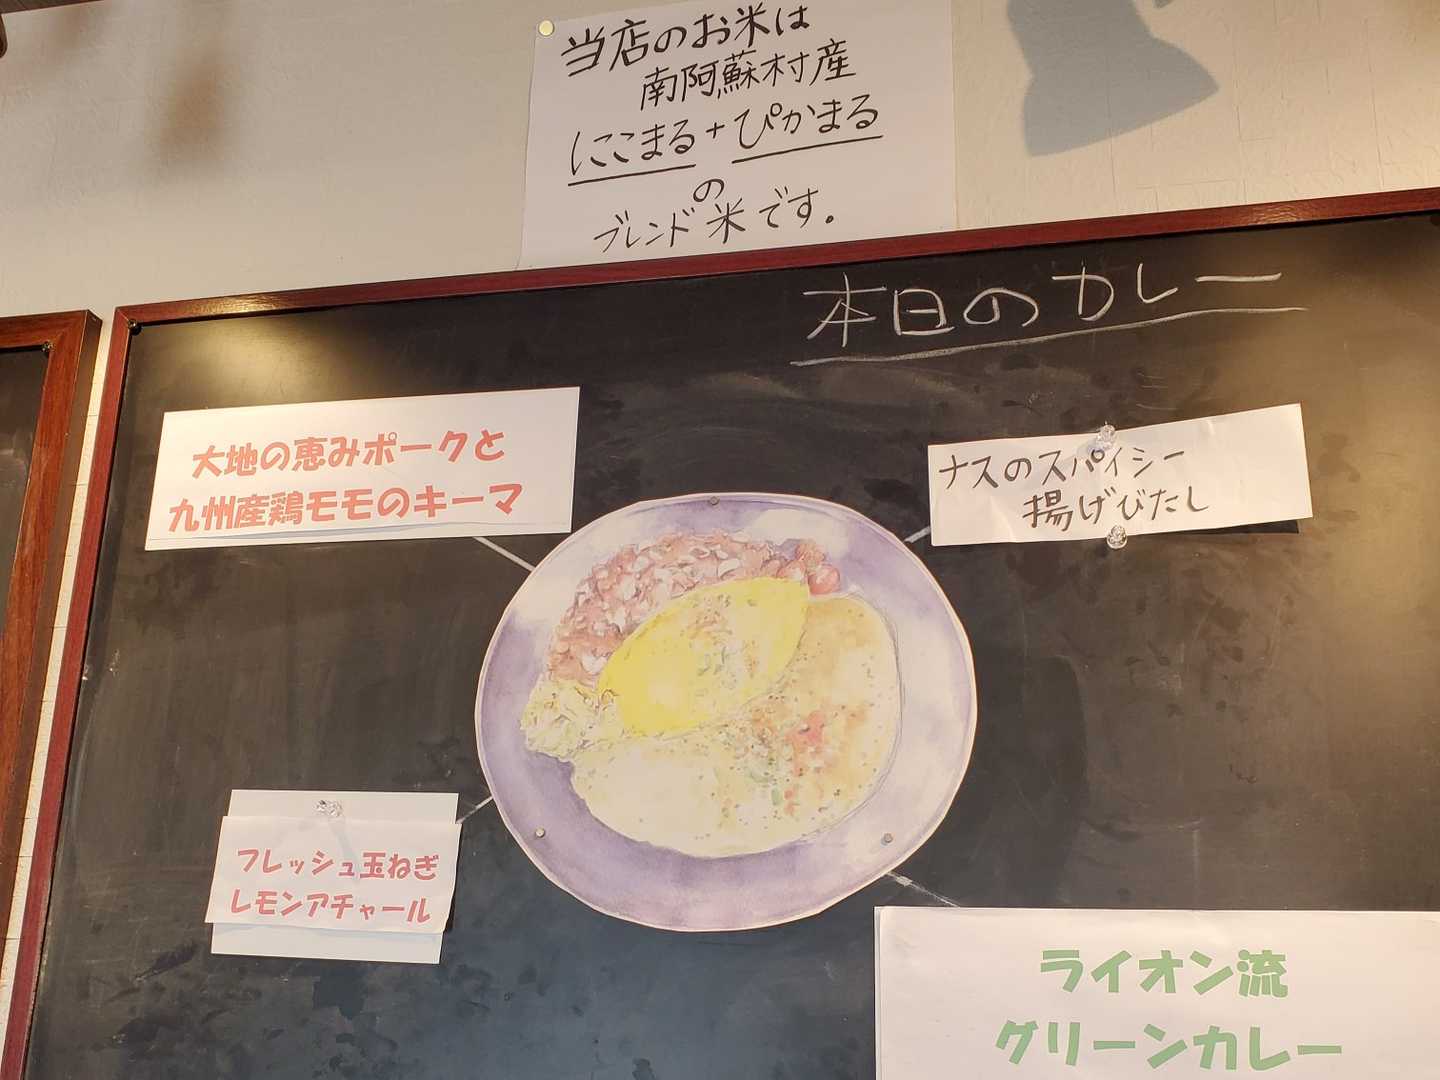 当店のお米は
南阿蘇村産
にこまる+ぴかまる
の
ブレンド米です。
本日のカレー
大地の恵みポークと
九州産鶏モモのキーマ
ナスのスパイシー
揚げびたし
フレッシュ玉ねぎ
レモンアチャール
ライオン流
グリーンカレー